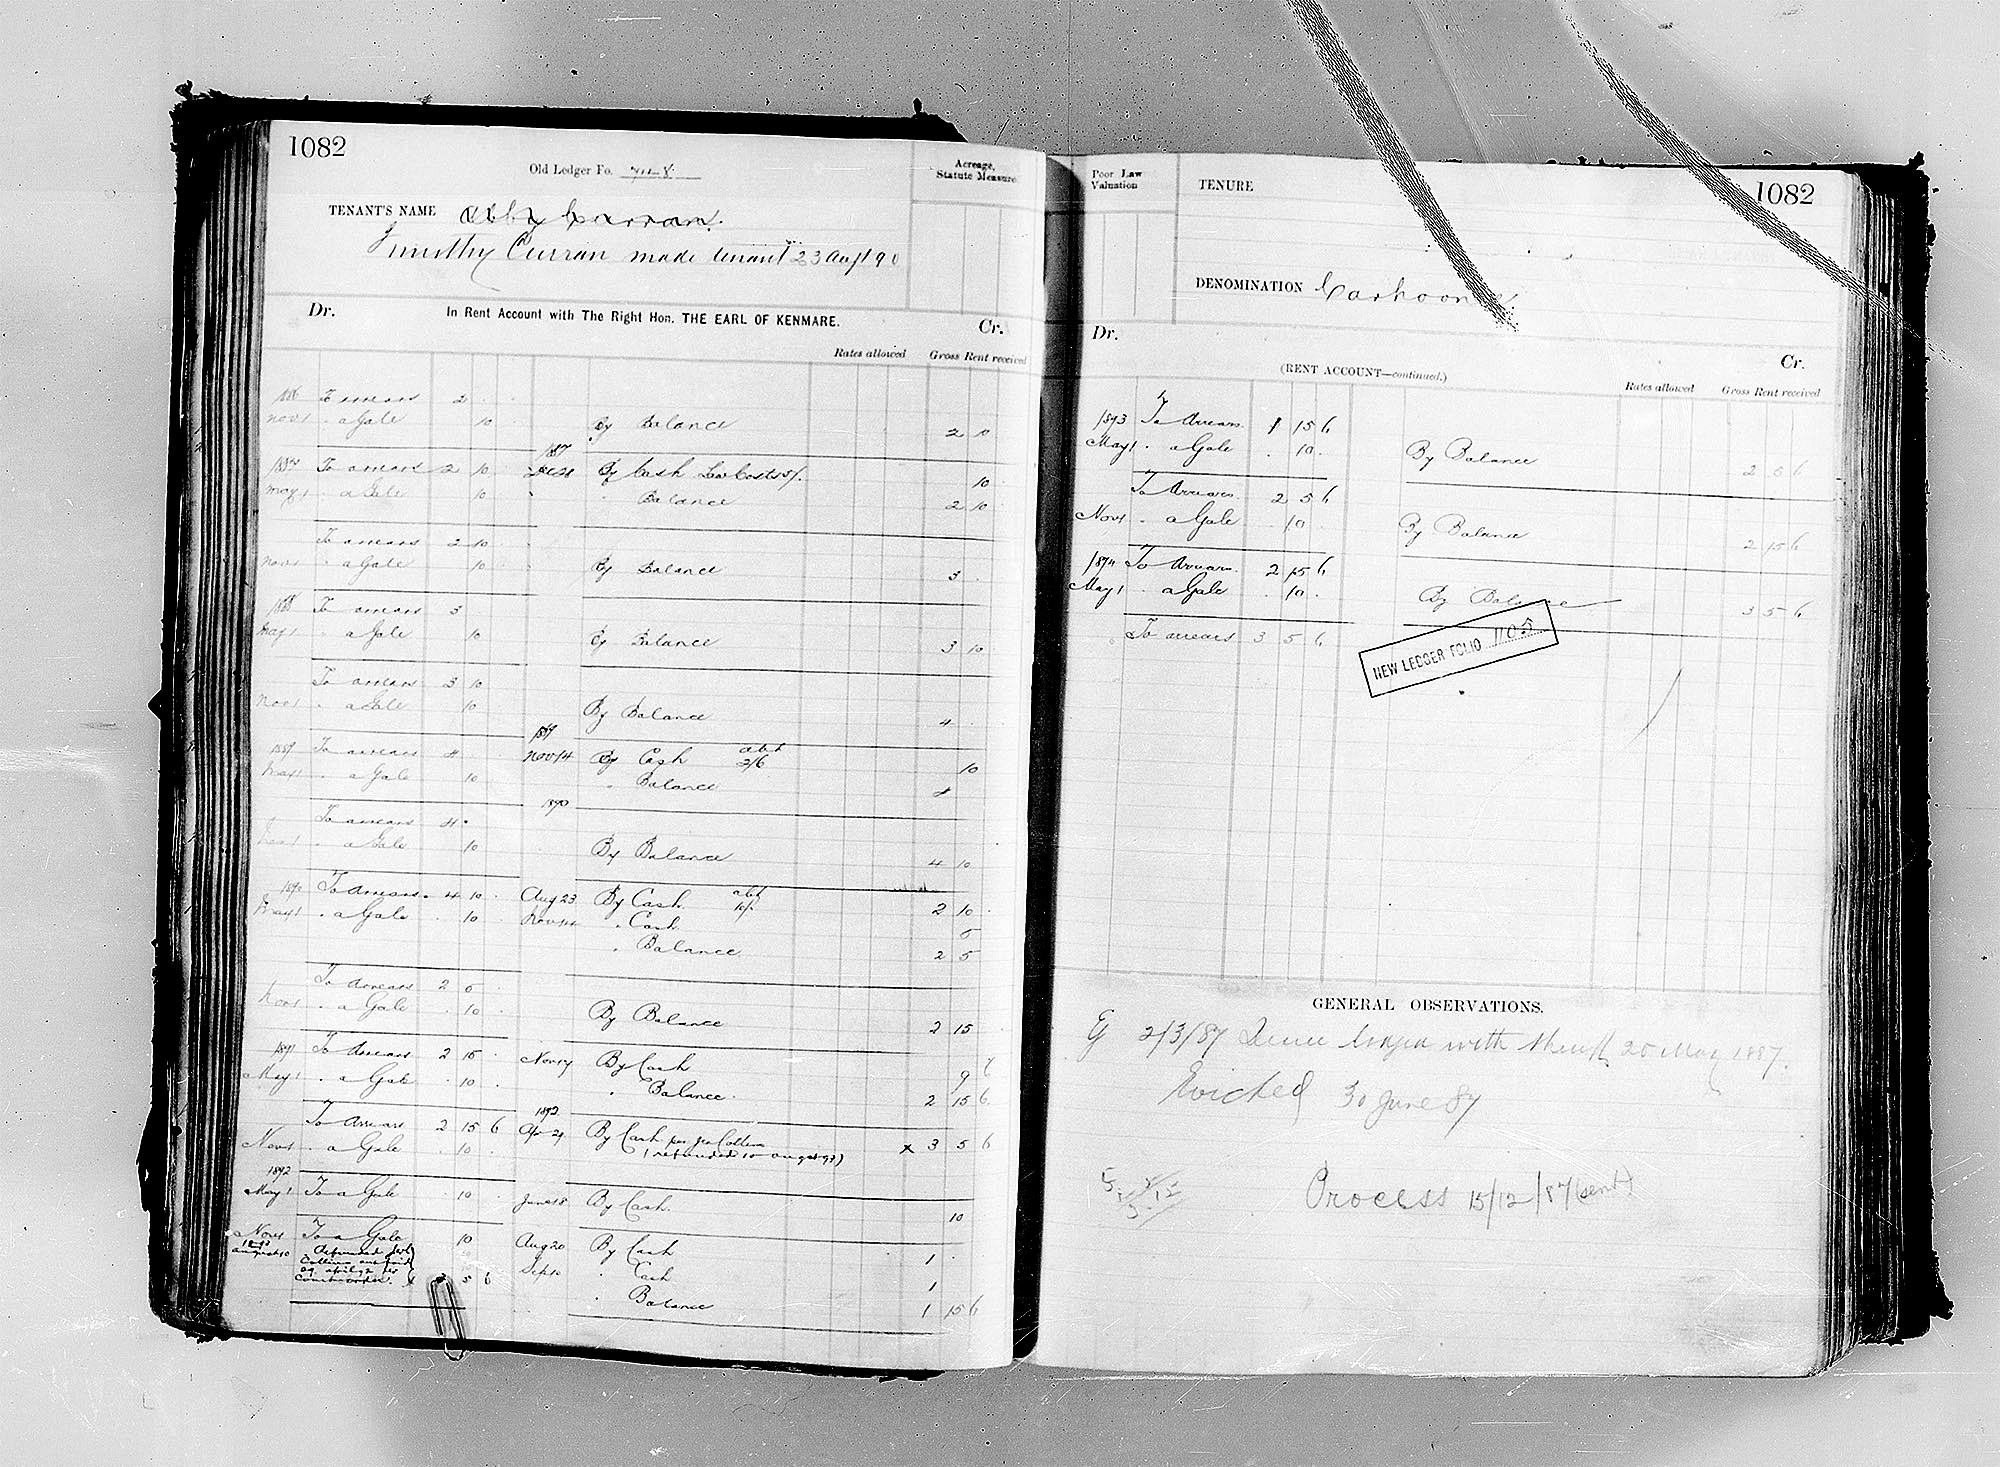 1082
Old Ledger Fo.
Acreage, Statute Measure
TENANT'S NAME Abby Curran.
Timothy Curran made tenant 23 Augt 90
Dr. In Rent Account with The Right Hon. THE EARL OF KENMARE. Cr.
Rates allowed Gross Rent received
1886 To arrears 2
Nov 1 " a Gale 10 By Balance 2 10
1887
1887 To arrears 2 10 Dec 28 By Cash Law Costs 5/. 10
May 1 " a Gale 10 " Balance 2 10
To arrears 2 10
Nov 1 " a Gale 10 By Balance 3
1888 To arrears 3
May 1 " a Gale 10 By Balance 3 10
To arrears 3 10
Nov 1 " a Gale 10 By Balance 4
1889
1889 To arrears 4 Nov 14 By Cash abt 2/6 10
May 1 " a Gale 10 " Balance 4
1890
To arrears 4
Nov 1 " a Gale 10 By Balance 4 10
1890 To Arrears 4 10 Aug 23 By Cash abt 10/. 2 10
May 1 " a Gale 10 Nov 14 " Cash 5
" Balance 2 5
To Arrears 2 5
Nov 1 " a Gale 10 By Balance 2 15
1891 To Arrears 2 15 Nov 17 By Cash 9 6
May 1 " a Gale 10 " Balance 2 15 6
1892
To Arrears 2 15 6 Apr 29 By Cash per Jno Collins x 3 5 6
Nov 1 " a Gale 10 (refunded 10 August 93)
1892
May 1 To a Gale 10 June 18 By Cash 10
Nov 1 To a Gale 10 Aug 20 By Cash 1
1893
August 10 Refunded Jno Sep 10 " Cash 1
Collins amt paid
29 April 92 per
Court order. x 3 5 6
" Balance 1 15 6
Poor Law Valuation
TENURE
1082
DENOMINATION Carhoonoe
Dr. Cr.
(RENT ACCOUNT—continued.)
Rates allowed Gross Rent received
1893 To Arrears 1 15 6
May 1 " a Gale 10 By Balance 2 5 6
To Arrears 2 5 6
Nov 1 " a Gale 10 By Balance 2 15 6
1894 To Arrears 2 15 6
May 1 " a Gale 10 By Balance 3 5 6
To arrears 3 5 6
NEW LEDGER FOLIO 1105
GENERAL OBSERVATIONS.
Ej 2/3/87 Decree lodged with Sheriff 20 May 1887.
Evicted 30 June 87
Process 15/12/87 (sent)